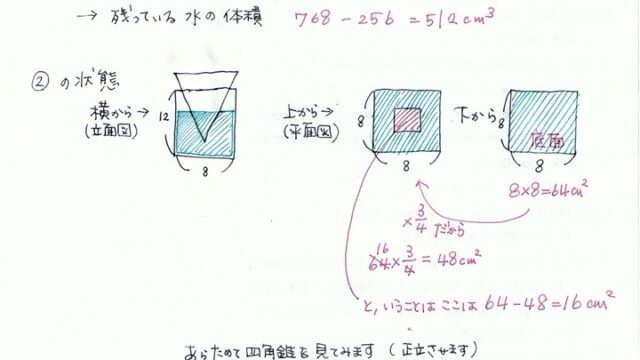 → 残っている水の体積 768-256=512cm³
② の状態
横から→
(立面図)
12
8
上から→
(平面図)
8
8
下から
8
8
底面
8×8=64cm²
×3/4 だから
16
64×3/4=48cm²
と、いうことは ここは 64-48=16cm²
あらためて四角錐を見てみます (正立させます)